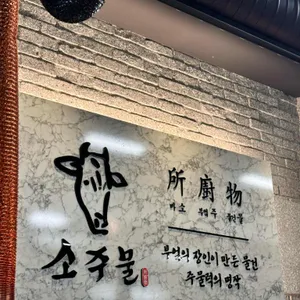 소주물
所廚物
바소 부엌주 물건물
부엌의 장인이 만든 물건
주물럭의 명작